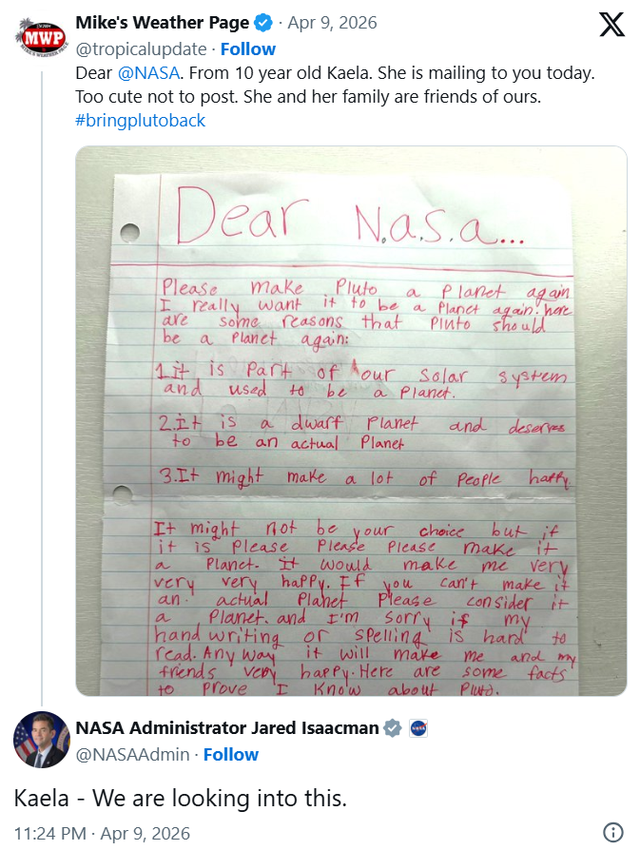 Mike's Weather Page · Apr 9, 2026
@tropicalupdate · Follow
MWP
MIKE'S WEATHER PAGE
Dear @NASA. From 10 year old Kaela. She is mailing to you today.
Too cute not to post. She and her family are friends of ours.
#bringplutoback
Dear N.a.s.a...
Please make Pluto a Planet again
I really want it to be a Planet again: here
are some reasons that Pluto should
be a Planet again:
1.it is Part of our solar system
and used to be a Planet.
2.It is a dwarf Planet and deserves
to be an actual Planet
3.It might make a lot of People happy
It might not be your choice but if
it is Please Please Please make it
a Planet. It would make me very
very very happy. If you can't make it
an actual Planet Please consider it
a Planet. and I'm sorry if my
hand writing or spelling is hard to
read. Any way it will make me and my
friends very happy. Here are some facts
to Prove I Know about Pluto.
NASA Administrator Jared Isaacman
@NASAAdmin · Follow
Kaela - We are looking into this.
11:24 PM · Apr 9, 2026